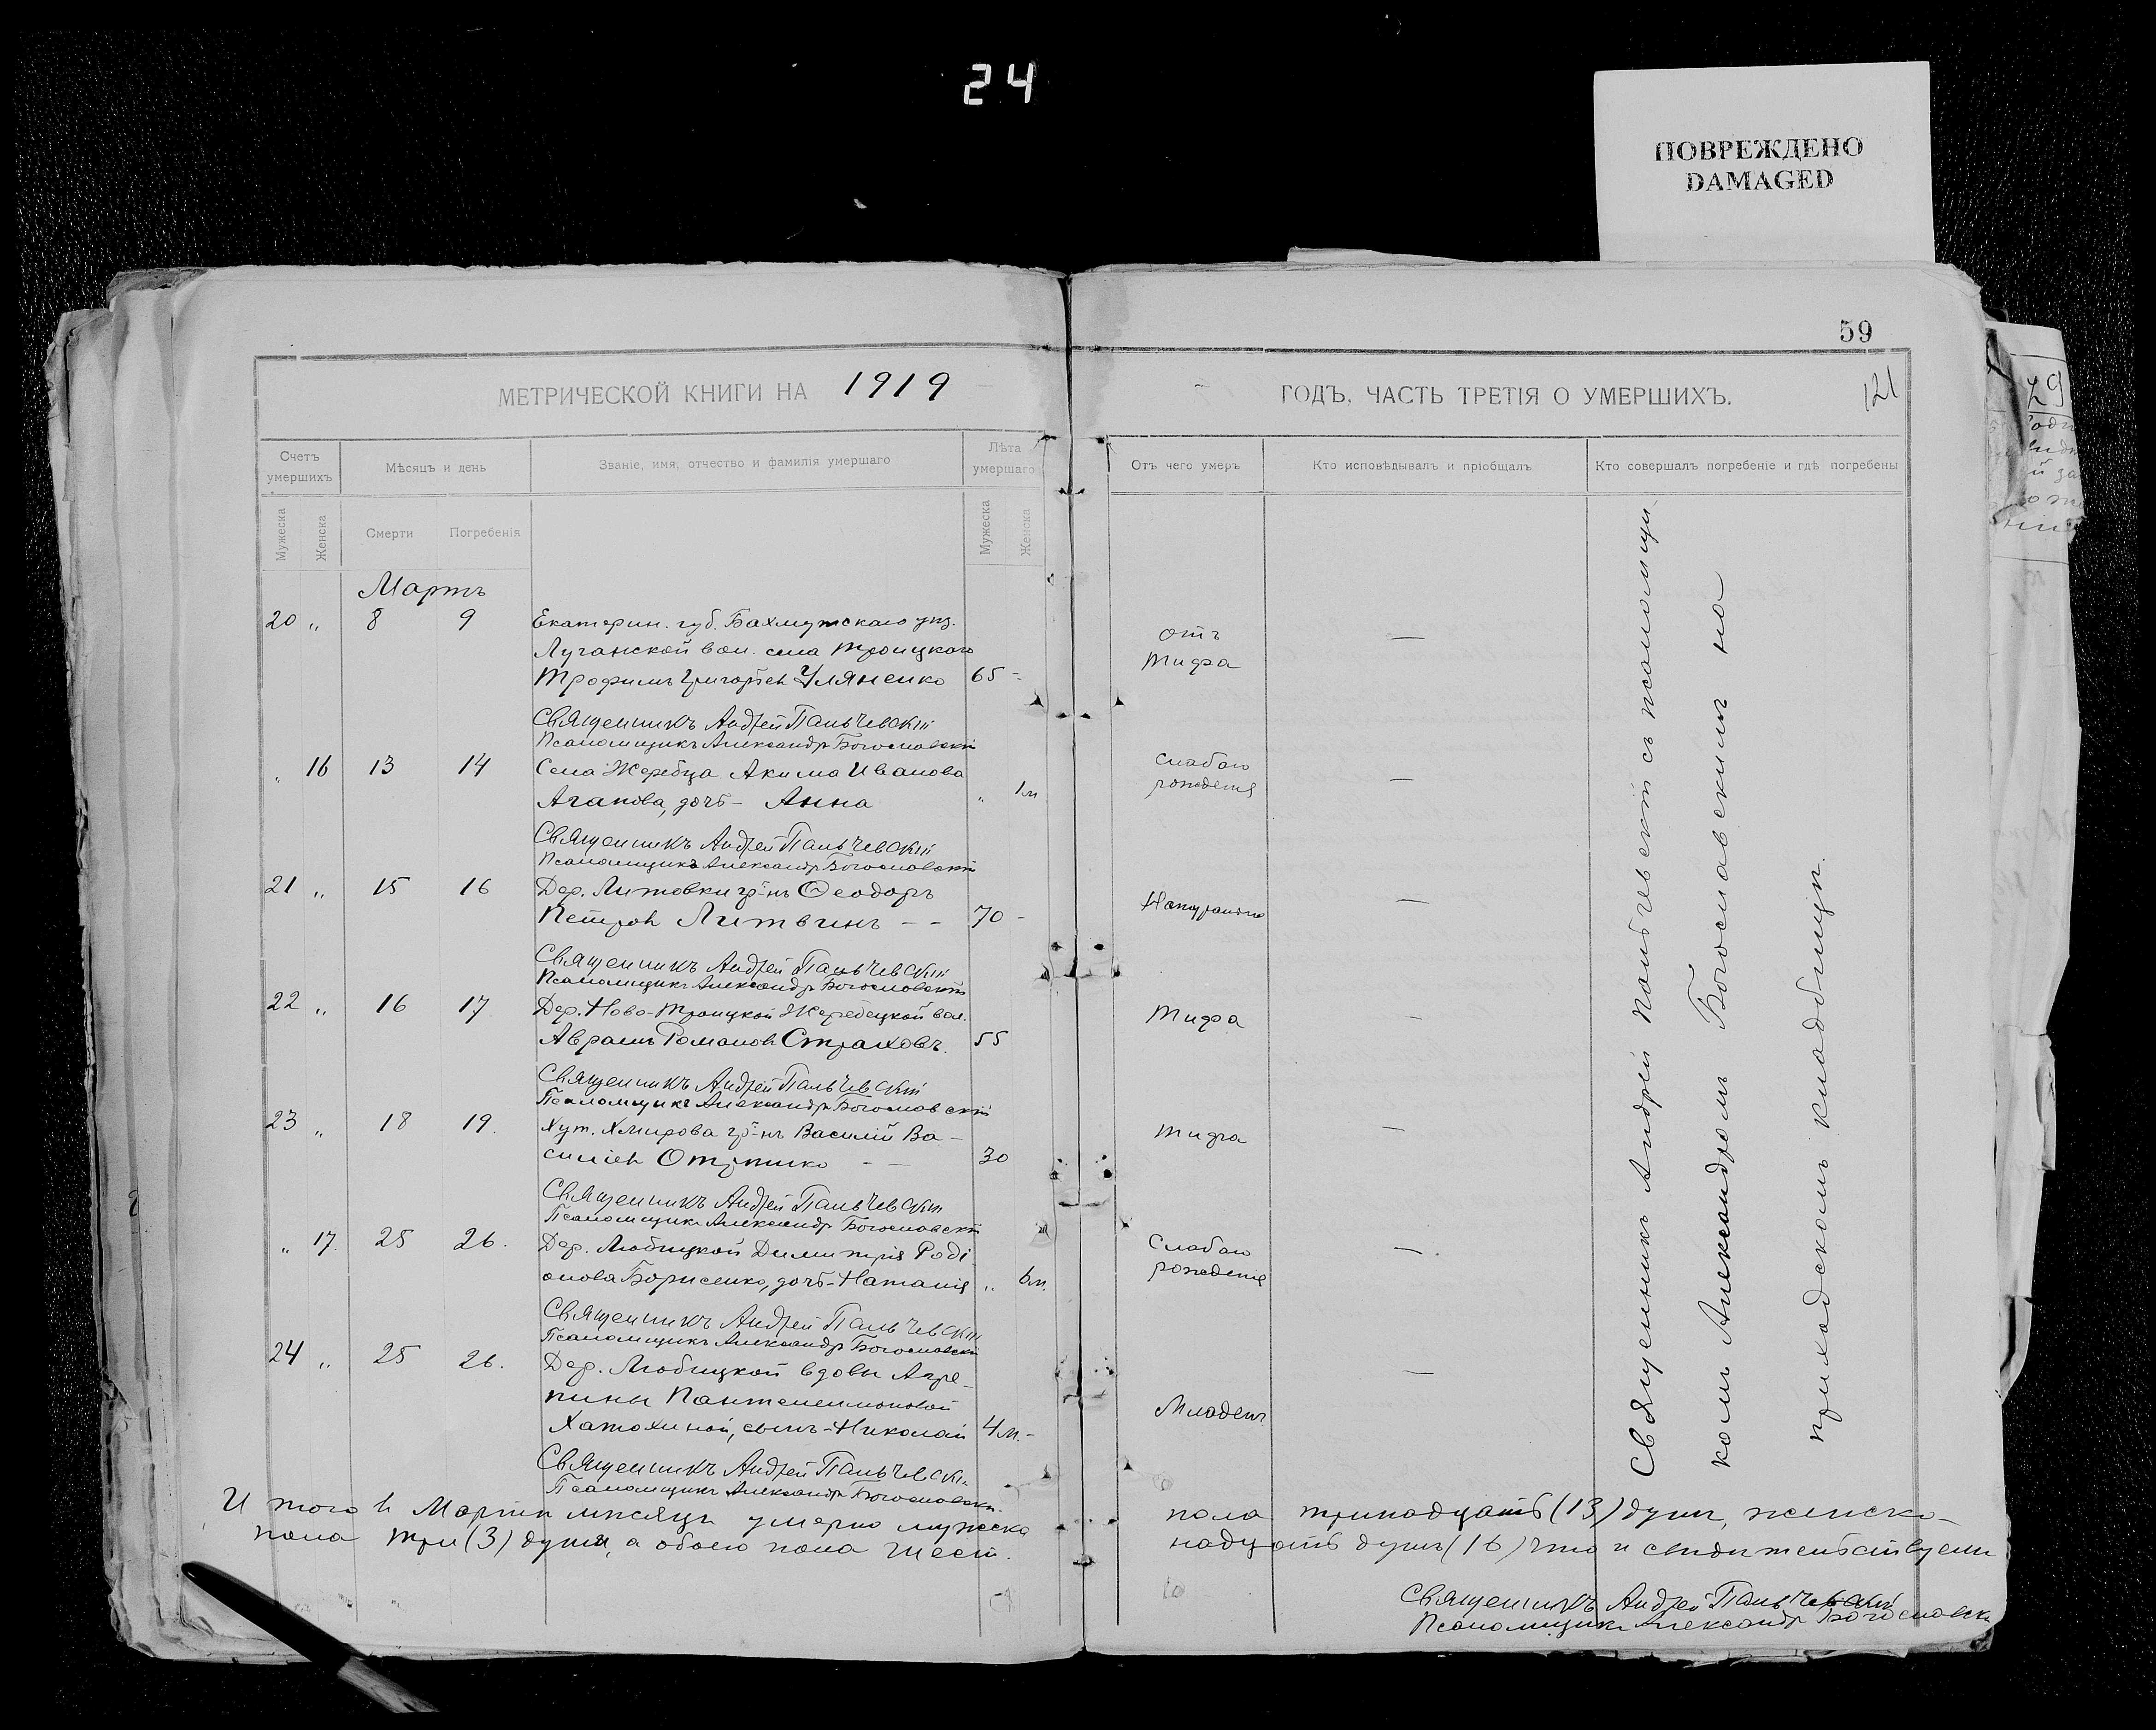 24
ПОВРЕЖДЕНО
DAMAGED
59
121
МЕТРИЧЕСКОЙ КНИГИ НА 1919 ГОДЪ, ЧАСТЬ ТРЕТІЯ О УМЕРШИХЪ.
Счетъ умершихъ
Мѣсяцъ и день
Званіе, имя, отчество и фамилія умершаго
Лѣта умершаго
Отъ чего умеръ
Кто исповѣдывалъ и пріобщалъ
Кто совершалъ погребеніе и гдѣ погребены
Мужеска Женска Смерти Погребенія Мужеска Женска
Мартъ
20 „ 8 9 Екатерин. губ. Бахмутскаго уѣз.
Луганской вол. села Троицкаго
Трофимъ Григорьев Уляненко 65 - отъ тифа —
Священникъ Андрей Пальчевскій
Псаломщикъ Александръ Богословскій
„ 16 13 14 Села Жеребца Акима Иванова
Агапова, дочь - Анна „ 1 м слабаго рожденія —
Священникъ Андрей Пальчевскій
Псаломщикъ Александръ Богословскій
21 „ 15 16 Дер. Литовки гр-нъ Ѳеодоръ
Петров Литвинъ - - 70 - —
Священникъ Андрей Пальчевскій
Псаломщикъ Александръ Богословскій
22 „ 16 17 Дер. Ново-Троицкой Жеребецкой вол.
Аврамъ Романов Страховъ. 55 тифа —
Священникъ Андрей Пальчевскій
Псаломщикъ Александръ Богословскій
23 „ 18 19. Хут. гр-нъ Василій Ва-
силіев 30 тифа —
Священникъ Андрей Пальчевскій
Псаломщикъ Александръ Богословскій
„ 17. 25 26. Дер. Любицкой Димитрія Роді
онова Борисенко, дочь - Наталія „ 6 м. Слабаго рожденія —
Священникъ Андрей Пальчевскій
Псаломщикъ Александръ Богословскій
24 „ 25 26. Дер. Любицкой вдовы Агре-
пины Пантелеимоновой
сынъ - Николай 4 м. - —
Священникъ Андрей Пальчевскі
Псаломщикъ Александръ Богословскі
Священникъ Андрей Пальчевскій съ псаломщи-
комъ Александромъ Богословскимъ на
приходскомъ кладбищѣ.
Итого в Мартѣ мѣсяцѣ умерло мужеска пола тринадцать (13) душъ, женска-
пола три (3) души, а обоего пола шест. надцать душъ (16) что и свидѣтельствуемъ
Священникъ Андрей Пальчевскій
Псаломщикъ Александръ Богословскі